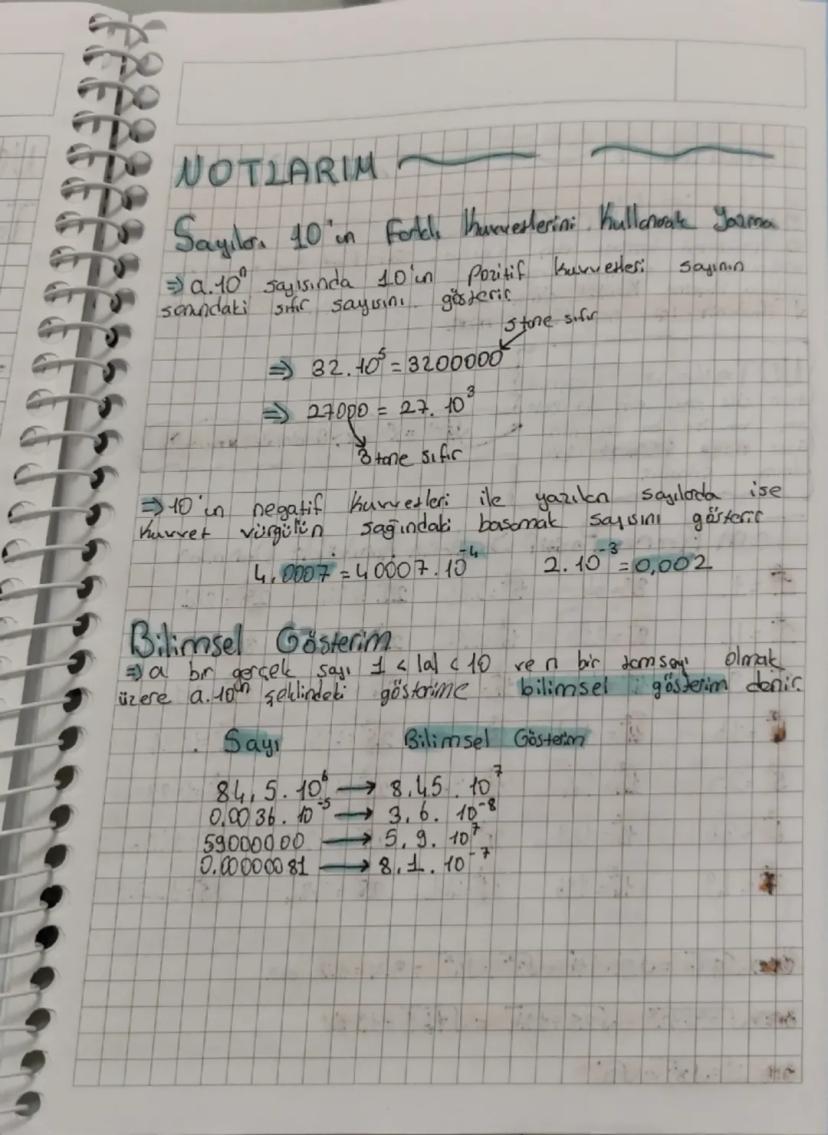 NOTLARIM
Sayıları 10'un Farklı Kuvvetlerini Kullanarak Yazma
⇒ a.10ⁿ sayısında 10'un Pozitif kuvvetleri sayının
sonundaki sıfır sayısını gösterir
5 tane sıfır
⇒ 32.10⁵ = 3200000
⇒ 27000 = 27.10³
3 tane sıfır
⇒ 10'un negatif kuvvetleri ile yazılan sayılarda ise
kuvvet virgülün sağındaki basamak sayısını gösterir
4,0007 = 40007.10⁻⁴ 2.10⁻³ = 0,002
Bilimsel Gösterim
⇒ a bir gerçek sayı 1 < |a| < 10 ve n bir tamsayı olmak
üzere a.10ⁿ şeklindeki gösterime bilimsel gösterim denir.
Sayı Bilimsel Gösterim
84,5.10⁶ → 8,45.10⁷
0,0036.10⁻⁵ → 3,6.10⁻⁸
59000000 → 5,9.10⁷
0.00000081 → 8,1.10⁻⁷